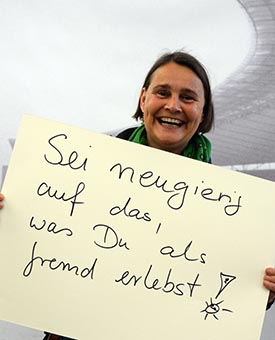 Sei neugierig
auf das,
was Du als
fremd erlebst!